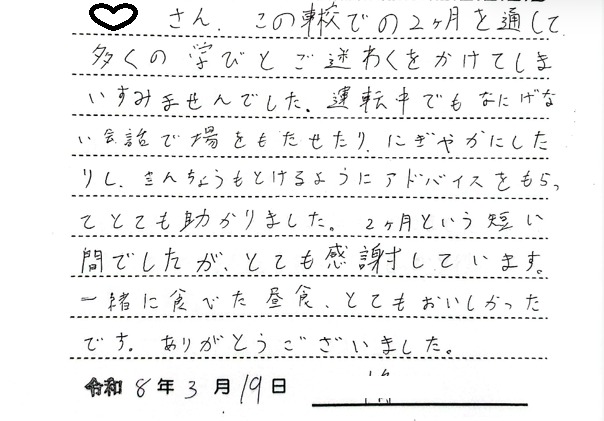 さん、この車校での2ヶ月を通して
多くの学びとご迷わくをかけてしま
いすみませんでした。運転中でもなにげな
い会話で場をもたせたり、にぎやかにした
りし、きんちょうもとけるようにアドバイスをもらっ
てとても助かりました。2ヶ月という短い
間でしたが、とても感謝しています。
一緒に食べた昼食、とてもおいしかった
です。ありがとうございました。
令和8年3月19日